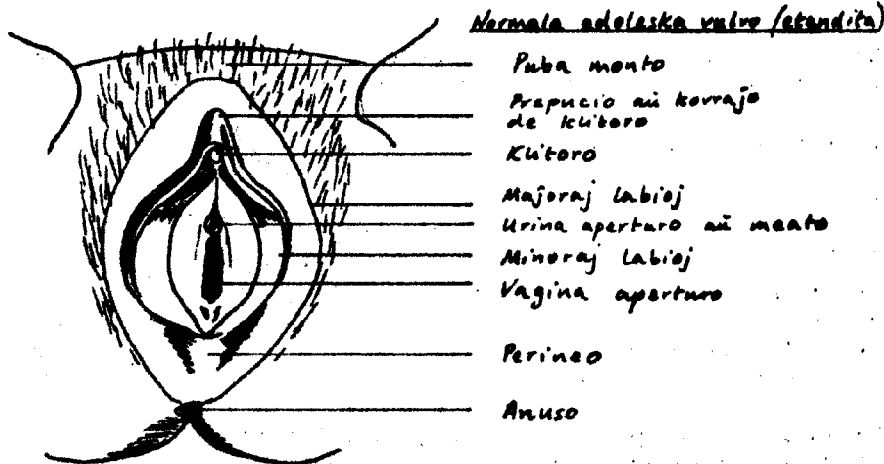 Normala adoleska vulvo (etendita)
Puba monto
Prepucio aŭ korrajo
de klitoro
Klitoro
Maĵoraj labioj
Urina aperturo aŭ meato
Minoraj labioj
Vagina aperturo
Perineo
Anuso